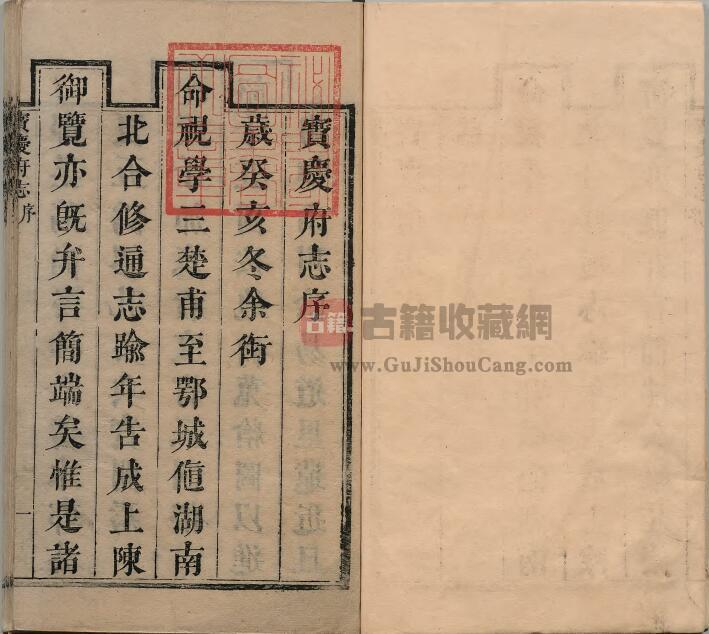 寳慶府志序
歲癸亥冬余銜
命視學三楚甫至鄂城值湖南
北合修通志踰年告成上陳
御覽亦旣弁言簡端矣惟是諸
寳慶府志 序
一
古籍 古籍收藏網
www.GuJiShouCang.com